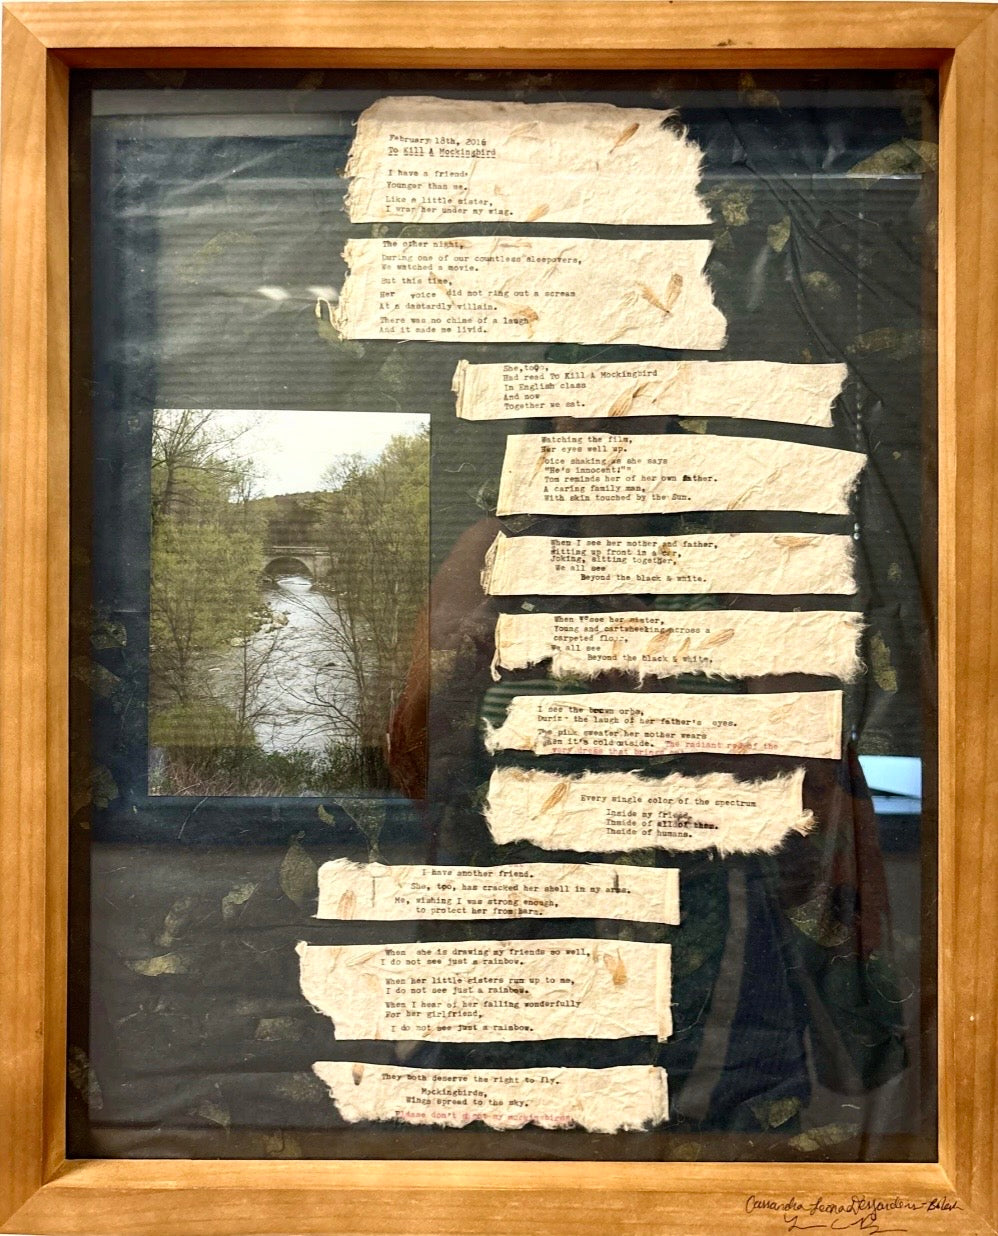 February 18th, 2016
To Kill A Mockingbird
I have a friend.
Younger than me.
Like a little sister,
I wrap her under my wing.
The other night,
During one of our countless sleepovers,
We watched a movie.
But this time,
Her voice did not ring out a scream
At a dastardly villain.
There was no chime of a laugh
And it made me livid.
She, too,
Had read To Kill A Mockingbird
In English class
And now
Together we sat.
Watching the film,
Her eyes well up.
Voice shaking as she says
"He's innocent!"
Tom reminds her of her own father.
A caring family man,
With skin touched by the Sun.
When I see her mother and father,
Sitting up front in a car,
Joking, sitting together,
We all see
Beyond the black & white.
When I see her sister,
Young and cartwheeling across a
carpeted floor,
We all see
Beyond the black & white.
I see the brown orbs,
During the laugh of her father's eyes.
The pink sweater her mother wears
When it's cold outside. The radiant red of the
very dress that brings
Every single color of the spectrum
Inside my friend.
Inside of all of them.
Inside of humans.
I have another friend.
She, too, has cracked her shell in my arms.
Me, wishing I was strong enough,
to protect her from harm.
When she is drawing my friends so well,
I do not see just a rainbow.
When her little sisters run up to me,
I do not see just a rainbow.
When I hear of her falling wonderfully
For her girlfriend,
I do not see just a rainbow.
They both deserve the right to fly.
Mockingbirds,
Wings spread to the sky.
Please don't shoot my mockingbirds.
Cassandra Leona DesJardens-